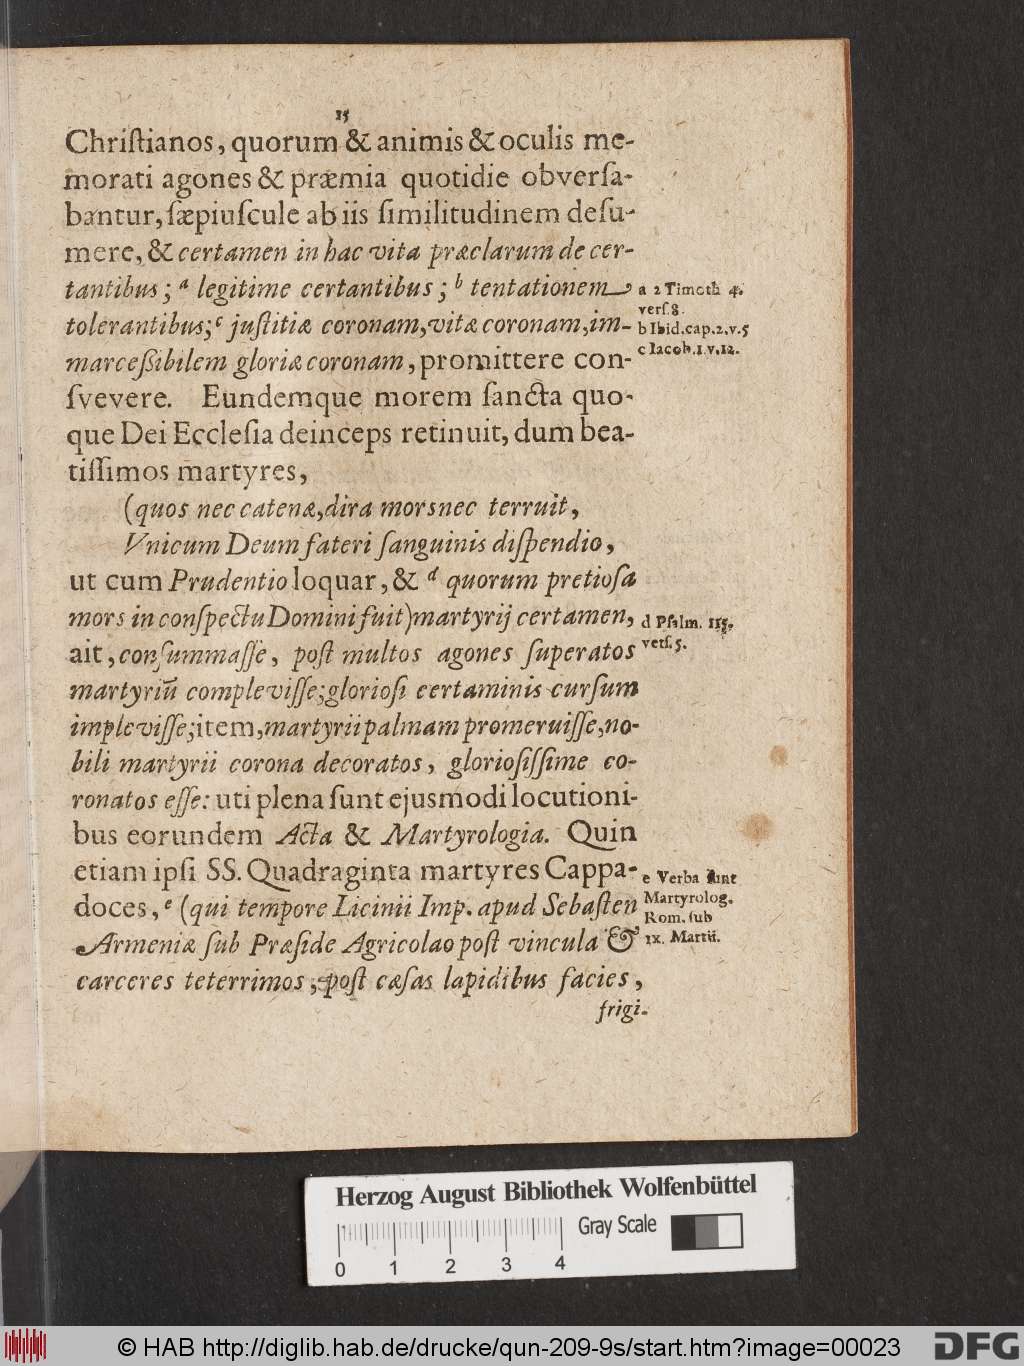 15
Chriſtianos, quorum & animis & oculis me-
morati agones & præmia quotidie obverſa-
bantur, ſæpiuſcule ab iis ſimilitudinem deſu-
mere, & certamen in hac vita præclarum de cer-
tantibus; a legitime certantibus; b tentationem
tolerantibus; c juſtitiæ coronam, vitæ coronam, im-
marceſſibilem gloriæ coronam, promittere con-
ſvevere. Eundemque morem ſancta quo-
que Dei Eccleſia deinceps retinuit, dum bea-
tiſſimos martyres,
(quos nec catenæ, dira mors nec terruit,
Vnicum Deum fateri ſanguinis diſpendio,
ut cum Prudentio loquar, & d quorum pretioſa
mors in conſpectu Domini fuit) martyrij certamen,
ait, conſummaſſe, poſt multos agones ſuperatos
martyriū compleviſſe; glorioſi certaminis curſum
impleviſſe; item, martyrii palmam promeruiſſe, no-
bili martyrii corona decoratos, glorioſiſſime co-
ronatos eſſe: uti plena ſunt ejusmodi locutioni-
bus eorundem Acta & Martyrologia. Quin
etiam ipſi SS. Quadraginta martyres Cappa-
doces, e (qui tempore Licinii Imp. apud Sebaſten
Armeniæ ſub Præſide Agricolao poſt vincula &
carceres teterrimos, poſt cæſas lapidibus facies,
frigi-
a 2 Timoth 4.
verſ. 8.
b Ibid. cap. 2. v. 5
c Iacob. 1. v. 12.
d Pſalm. 115.
verſ. 5.
e Verba ſunt
Martyrolog.
Rom. ſub
IX. Martii.
Herzog August Bibliothek Wolfenbüttel
Gray Scale
0 1 2 3 4
© HAB http://diglib.hab.de/drucke/qun-209-9s/start.htm?image=00023
DFG